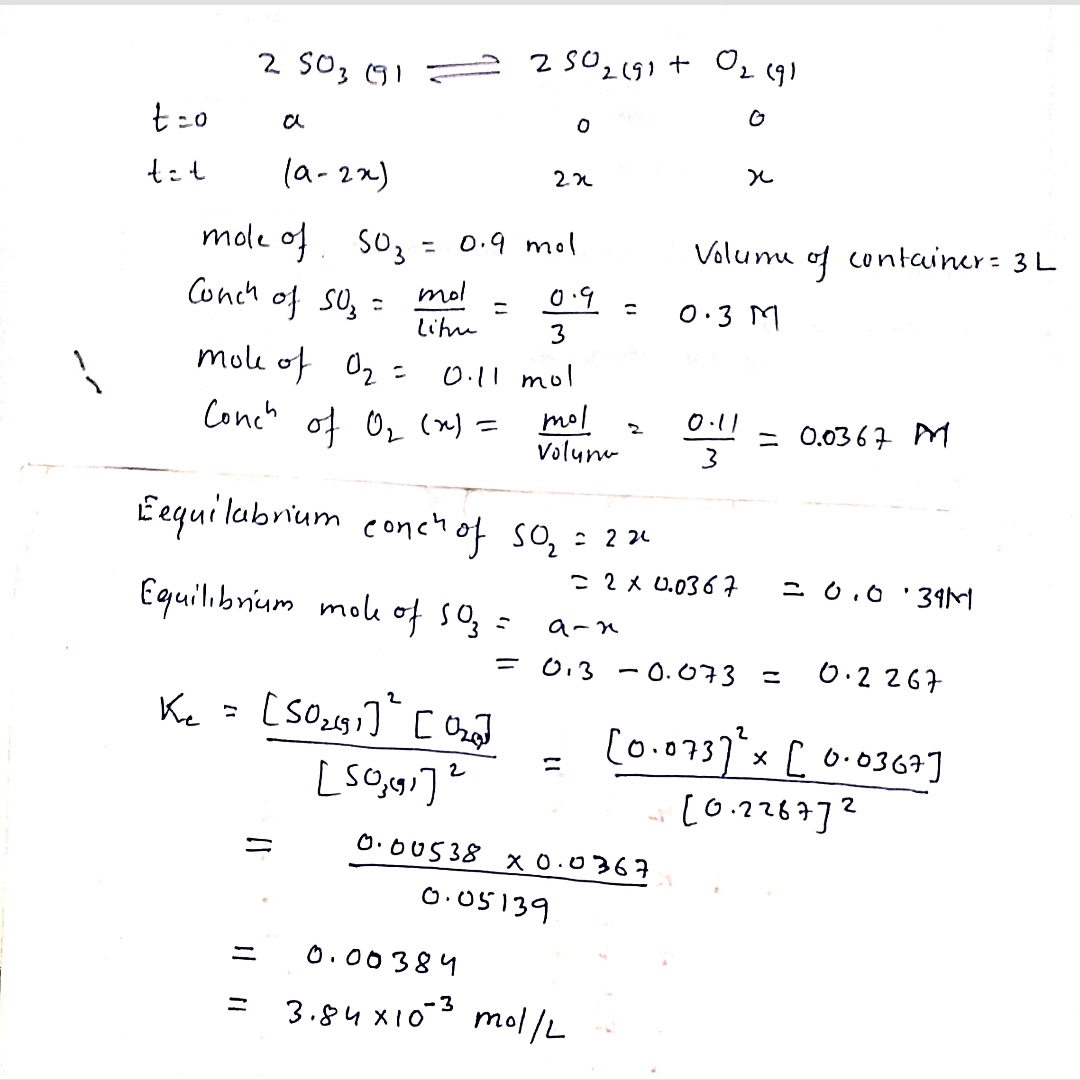 2 SO₃ (g) ⇌ 2 SO₂ (g) + O₂ (g)
t=0 a 0 0
t=t (a-2x) 2x x
mole of SO₃ = 0.9 mol Volume of container = 3 L
Concn of SO₃ = mol/litre = 0.9/3 = 0.3 M
mole of O₂ = 0.11 mol
Concn of O₂ (x) = mol/volume = 0.11/3 = 0.0367 M
Eequilabrium concn of SO₂ = 2x
= 2 x 0.0367 =
Equilibrium mole of SO₃ = a-x
= 0.3 - 0.073 = 0.2267
Kc = [SO₂(g)]² [O₂(g)] / [SO₃(g)]² = [0.073]² x [0.0367] / [0.2267]²
= 0.00538 x 0.0367 / 0.05139
= 0.00384
= 3.84 x10⁻³ mol/L